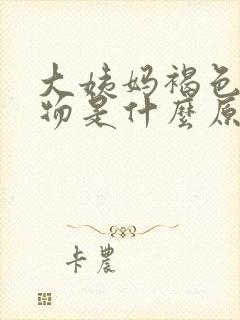 大姨妈褐色
物是什麼原
卡農